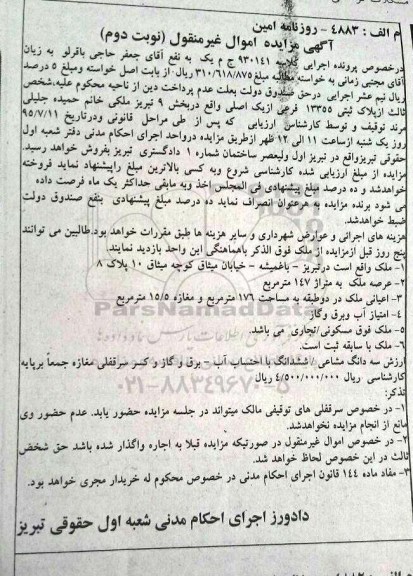 م الف : ۴۸۸۳ - روزنامه امین
آگهی مزایده اموال غیرمنقول (نوبت دوم)
درخصوص پرونده اجرایی کلاسه ۹۳۰۱۴۱ ج م یک به نفع آقای جعفر حاجی باقرلو به زیان
آقای مجتبی زمانی به خواسته مطالبه مبلغ ۳۱۰/۶۱۸/۸۷۵ ریال از بابت اصل خواسته ومبلغ ۵ درصد
ریال نیم عشر اجرایی درحق صندوق دولت بعلت عدم پرداخت دین از ناحیه محکوم علیه،شخص
ثالث ازپلاک ثبتی ۱۳۳۵۵ فرعی ازیک اصلی واقع دربخش ۹ تبریز ملکی خانم حمیده جلیلی
مرند توقیف و توسط کارشناس ارزیابی که پس از طی مراحل قانونی ودرتاریخ ۹۵/۷/۱۱
روز یک شنبه ازساعت ۱۱ الی ۱۲ ظهر ازطریق مزایده درواحد اجرای احکام مدنی دفتر شعبه اول
حقوقی تبریزواقع در تبریز اول ولیعصر ساختمان شماره ۱ دادگستری تبریز بفروش خواهد رسید.
مزایده از مبلغ ارزیابی شده کارشناسی شروع وبه کسی بالاترین مبلغ راپیشنهاد نماید فروخته
خواهدشد و ده درصد مبلغ پیشنهادی فی المجلس اخذ وبه مابقی حداکثر یک ماه فرصت داده
می شود برنده مزایده به هرعنوان انصراف نماید ده درصد مبلغ پیشنهادی بنفع صندوق دولت
ضبط خواهدشد.
هزینه های اجرائی و عوارض شهرداری و سایر هزینه ها طبق مقررات خواهد بود.طالبین می توانند
پنج روز قبل ازمزایده از ملک فوق الذکر باهماهنگی این واحد بازدید نمایند.
۱- ملک واقع است درتبریز - باغمیشه - خیابان میثاق کوچه میثاق ۱۰ پلاک ۸
۲- عرصه ملک به متراژ ۱۴۷ مترمربع
۳- اعیانی ملک در دوطبقه به مساحت ۱۷۶ مترمربع و مغازه ۱۵/۵ مترمربع
۴- امتیاز آب وبرق وگاز
۵- ملک فوق مسکونی/تجاری می باشد.
۶- ملک با سابقه ثبت است.
ارزش سه دانگ مشاعی /ششدانگ با احتساب آب - برق و گاز و کسر سرقفلی مغازه جمعاً برپایه
کارشناسی ریال ۴/۵۰۰/۰۰۰/۰۰۰ ریال
تذکر:
۱- در خصوص سرقفلی های توقیفی مالک میتواند در جلسه مزایده حضور یابد. عدم حضور وی
مانع از انجام مزایده نخواهدشد.
۲- در خصوص اموال غیرمنقول در صورتیکه مزایده قبلا به اجاره واگذار شده باشد حق شخص
ثالث در این خصوص لحاظ خواهد شد.
۳- مفاد ماده ۱۴۴ قانون اجرای احکام مدنی در خصوص محکوم له خریدار مجری خواهد بود.
دادورز اجرای احکام مدنی شعبه اول حقوقی تبریز
ParsNamadData
۰۲۱-۸۸۳۴۹۶۷۰-۵